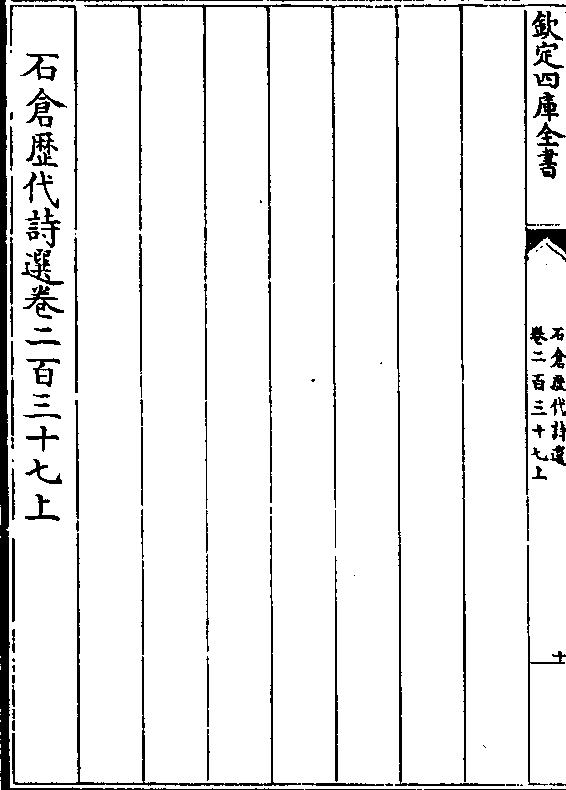 欽定四庫全書
石倉歴代詩選
卷二百三十七上
十
石倉歴代詩選卷二百三十七上